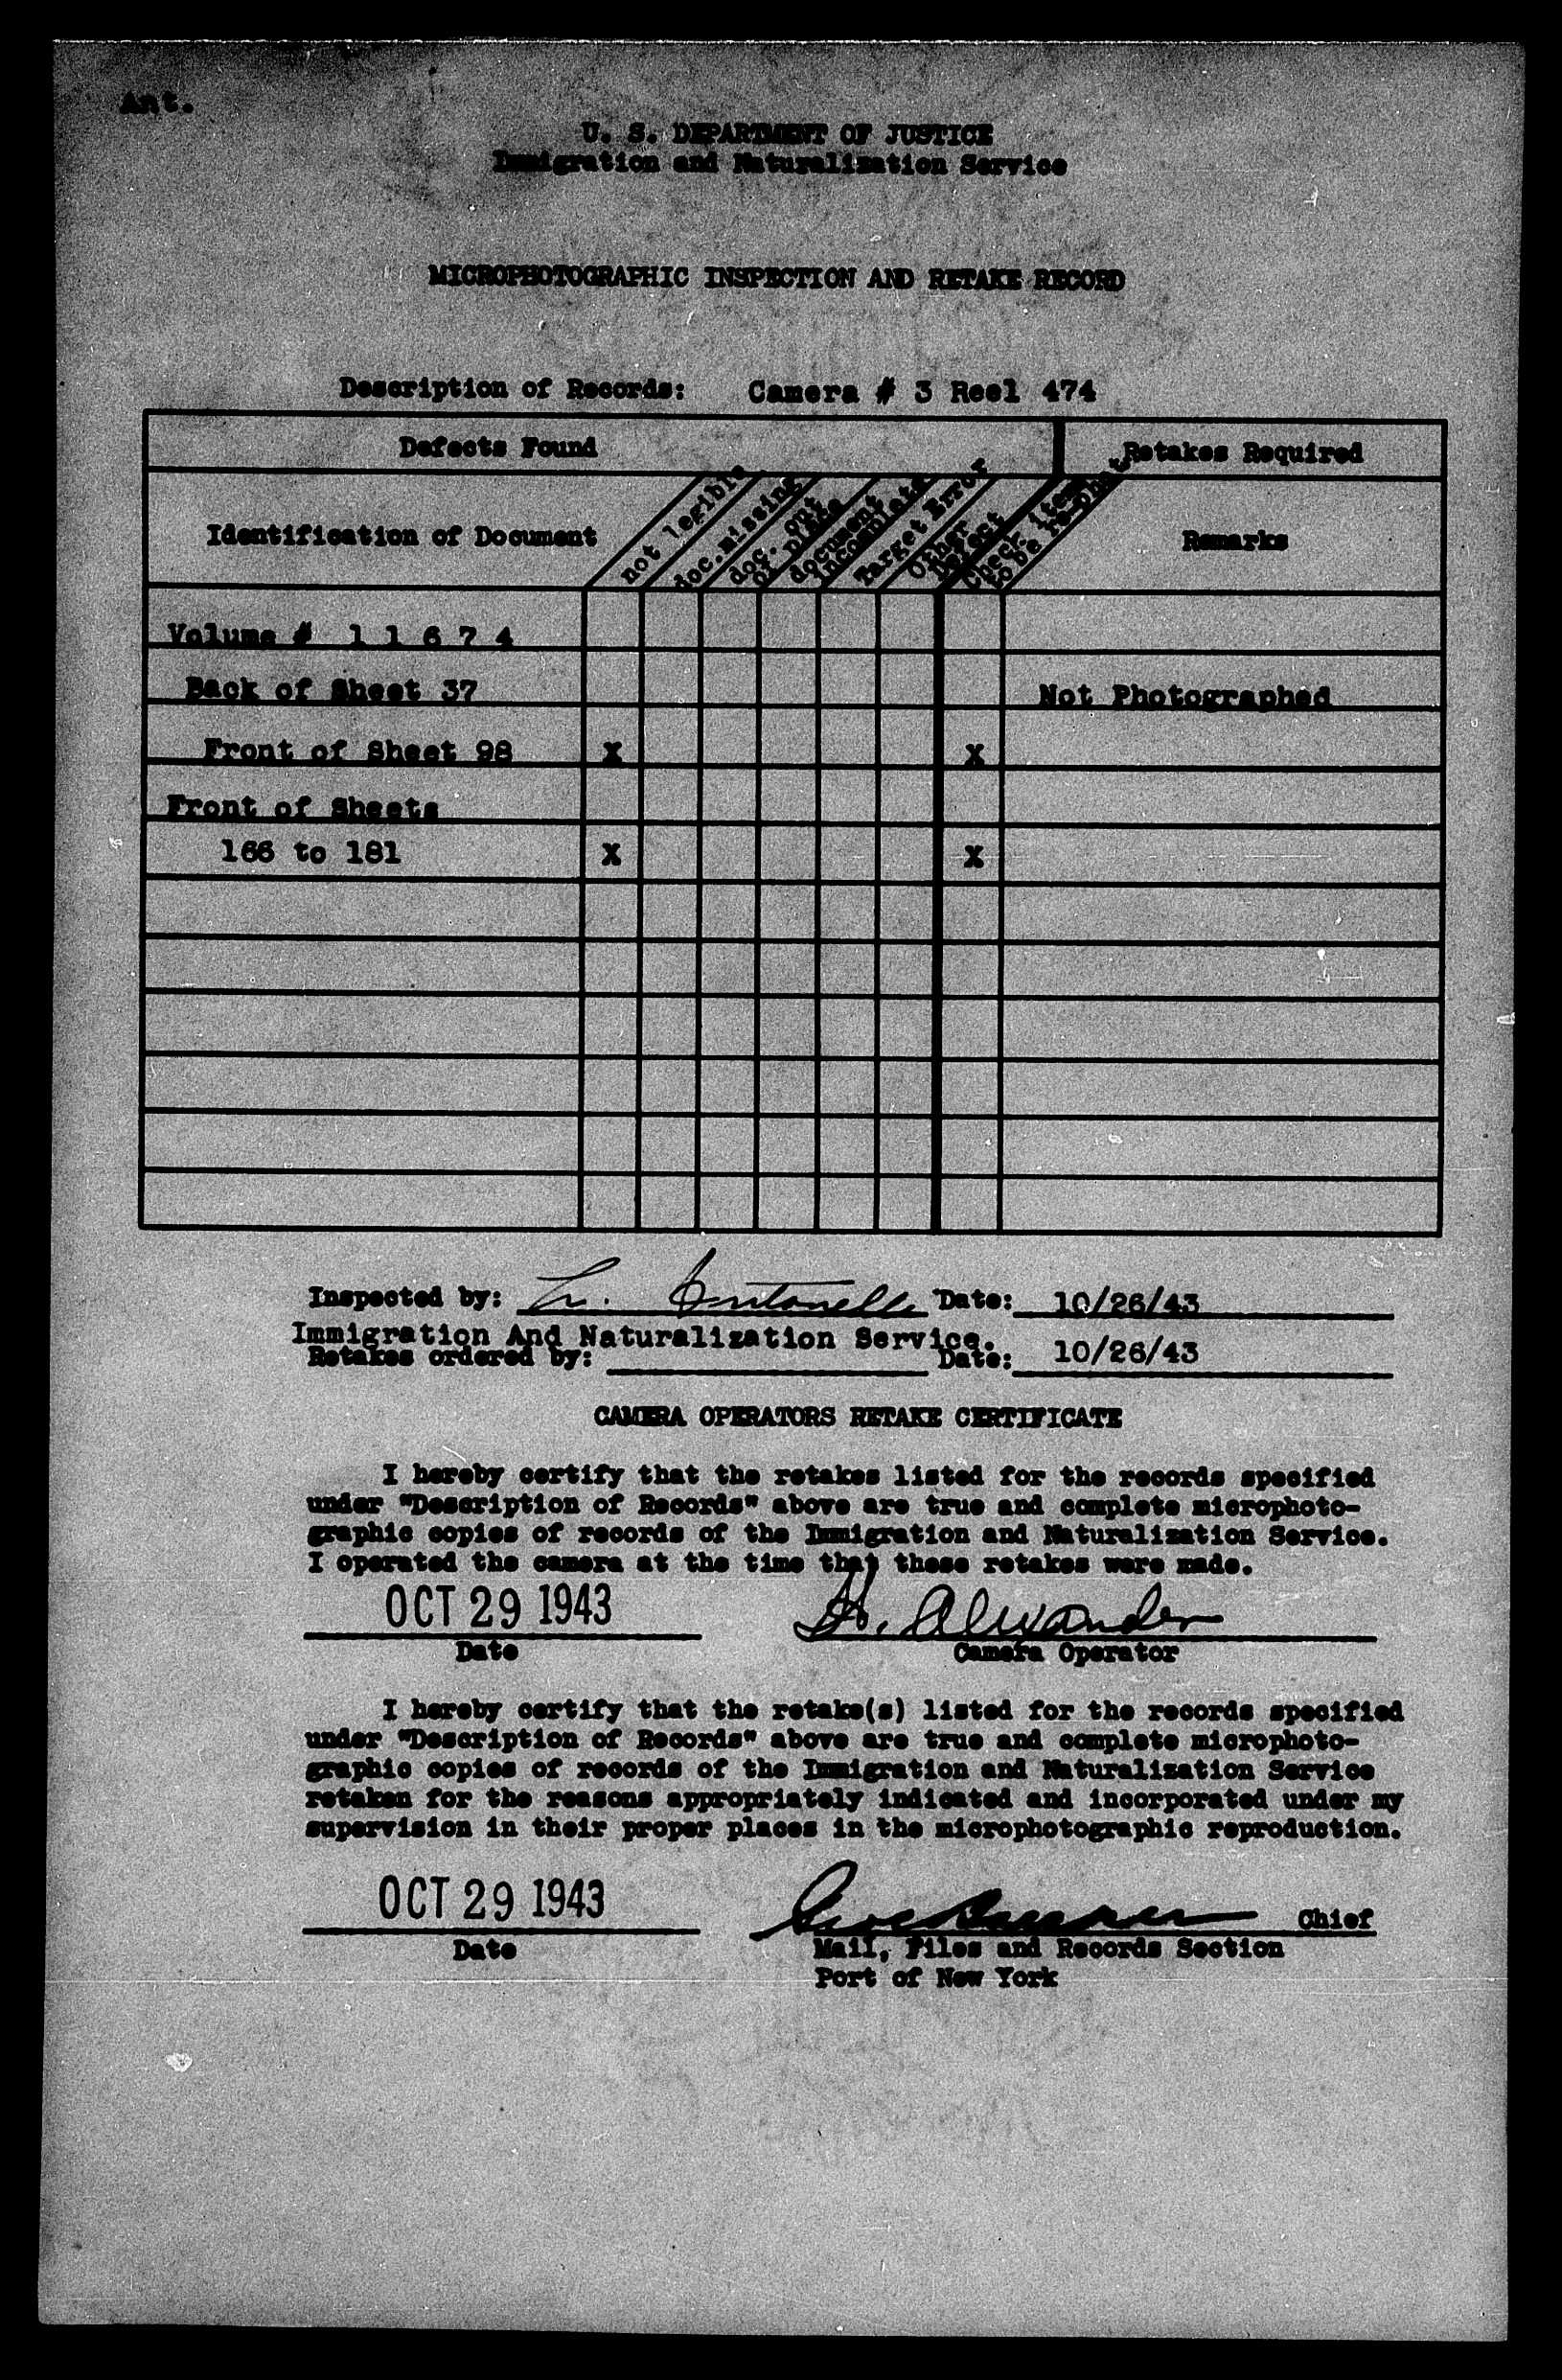 Ant.
U. S. DEPARTMENT OF JUSTICE
Immigration and Naturalization Service
MICROPHOTOGRAPHIC INSPECTION AND RETAKE RECORD
Description of Records: Camera # 3 Reel 474
Defects Found Retakes Required
Identification of Document
not legible
doc.missing
doc. out
of place
document
incomplete
Target Error
Other
Defect
Check item
to be rephot
Remarks
Volume # 1 1 6 7 4
Back of Sheet 37 Not Photographed
Front of Sheet 98 X X
Front of Sheets
166 to 181 X X
Inspected by: Date: 10/26/43
Immigration And Naturalization Service.
Retakes ordered by: Date: 10/26/43
CAMERA OPERATORS RETAKE CERTIFICATE
I hereby certify that the retakes listed for the records specified
under "Description of Records" above are true and complete microphoto-
graphic copies of records of the Immigration and Naturalization Service.
I operated the camera at the time that these retakes were made.
OCT 29 1943 H. Alexander
Date Camera Operator
I hereby certify that the retake(s) listed for the records specified
under "Description of Records" above are true and complete microphoto-
graphic copies of records of the Immigration and Naturalization Service
retaken for the reasons appropriately indicated and incorporated under my
supervision in their proper places in the microphotographic reproduction.
OCT 29 1943 Chief
Date Mail, Files and Records Section
Port of New York